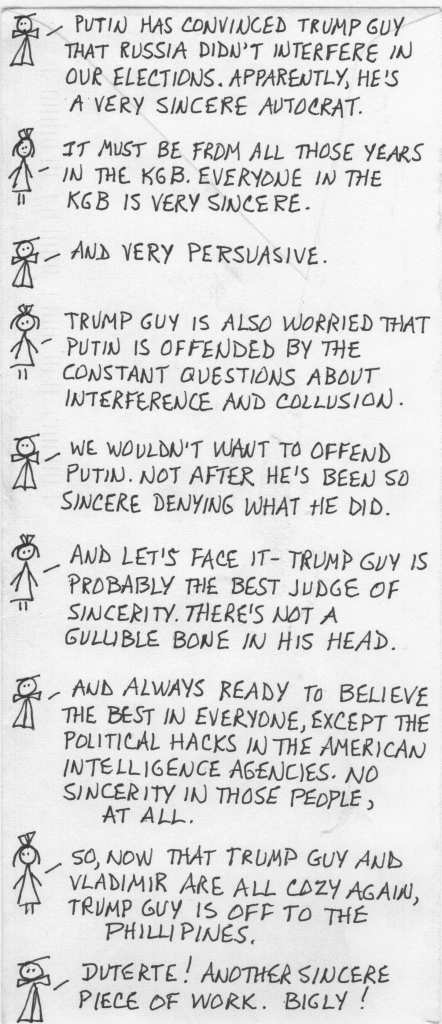 PUTIN HAS CONVINCED TRUMP GUY
THAT RUSSIA DIDN'T INTERFERE IN
OUR ELECTIONS. APPARENTLY, HE'S
A VERY SINCERE AUTOCRAT.
IT MUST BE FROM ALL THOSE YEARS
IN THE KGB. EVERYONE IN THE
KGB IS VERY SINCERE.
AND VERY PERSUASIVE.
TRUMP GUY IS ALSO WORRIED THAT
PUTIN IS OFFENDED BY THE
CONSTANT QUESTIONS ABOUT
INTERFERENCE AND COLLUSION.
WE WOULDN'T WANT TO OFFEND
PUTIN. NOT AFTER HE'S BEEN SO
SINCERE DENYING WHAT HE DID.
AND LET'S FACE IT- TRUMP GUY IS
PROBABLY THE BEST JUDGE OF
SINCERITY. THERE'S NOT A
GULLIBLE BONE IN HIS HEAD.
AND ALWAYS READY TO BELIEVE
THE BEST IN EVERYONE, EXCEPT THE
POLITICAL HACKS IN THE AMERICAN
INTELLIGENCE AGENCIES. NO
SINCERITY IN THOSE PEOPLE,
AT ALL.
SO, NOW THAT TRUMP GUY AND
VLADIMIR ARE ALL COZY AGAIN,
TRUMP GUY IS OFF TO THE
PHILLIPINES.
DUTERTE! ANOTHER SINCERE
PIECE OF WORK. BIGLY!